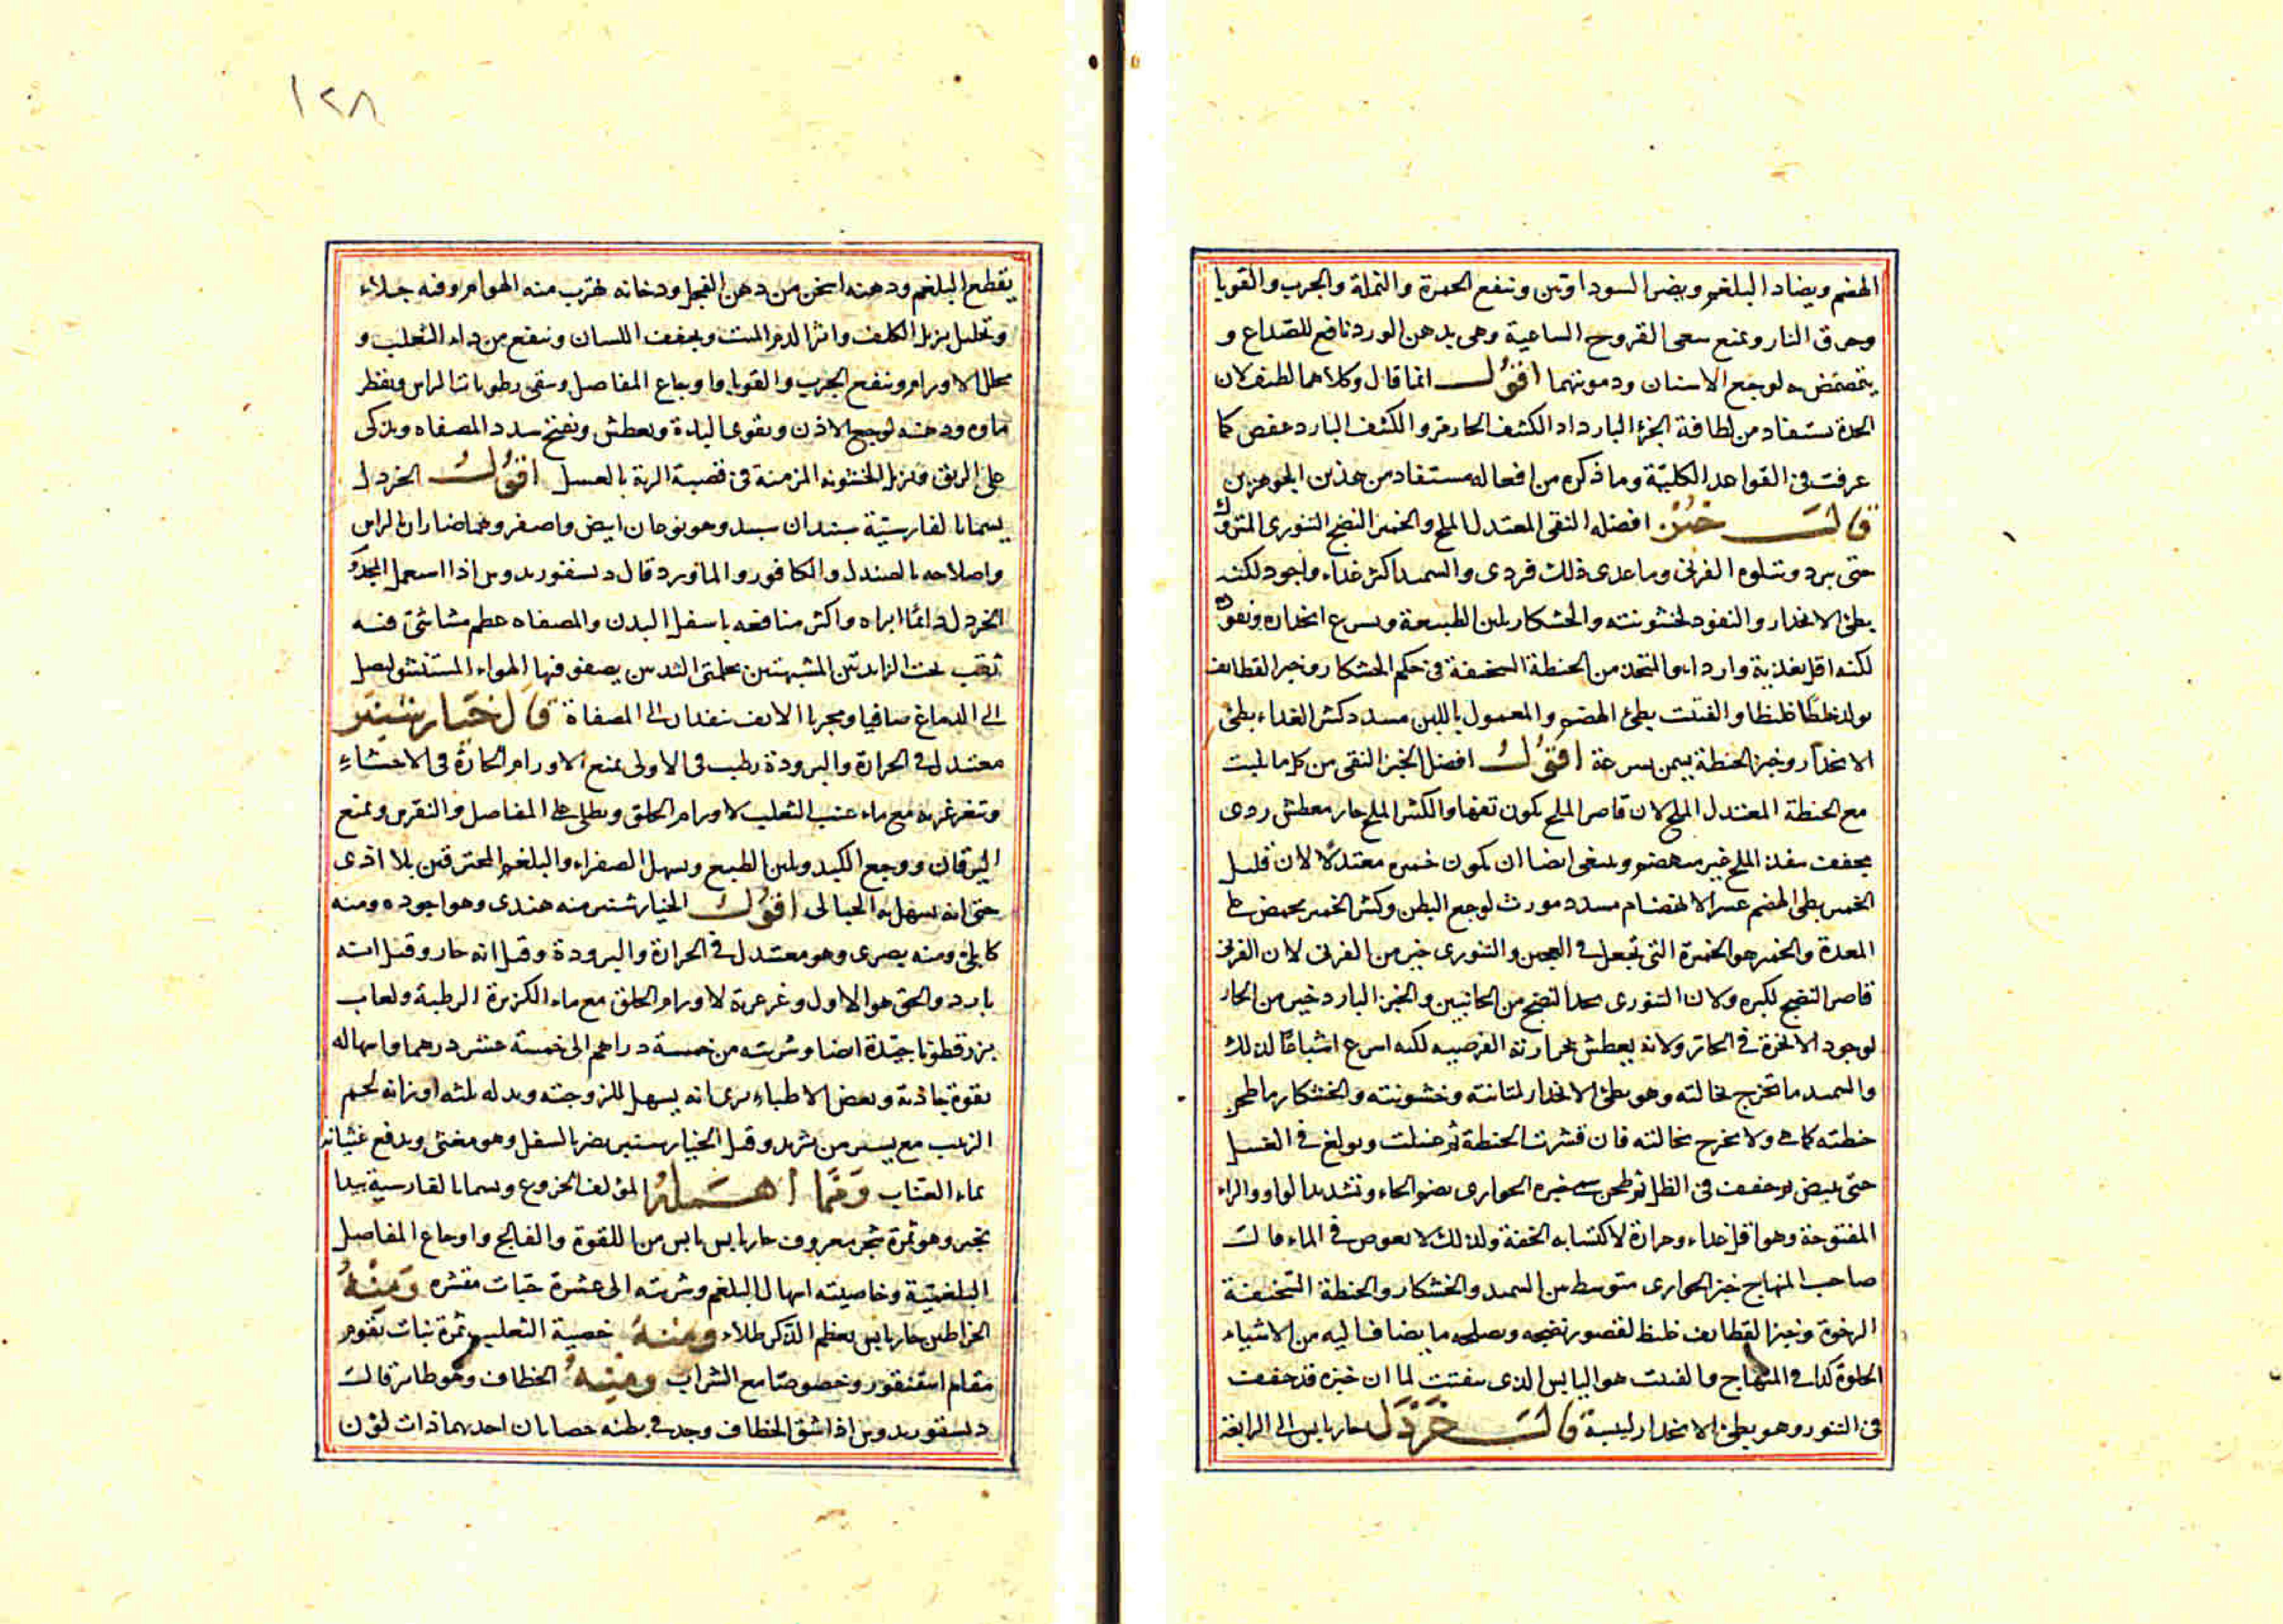 الهضم ويضاد البلغم ويضر السوداويين وينفع الحمرة والنملة والجرب والقوبا
وحرق النار ويمنع سعى القروح الساعية وهى بدهن الورد نافع للصداع و
يتمضمض به لوجع الاسنان ودمويتهما اقول انما قال وكلاهما لطيف لان
الحدة ستفاد من لطافة الجزء البارد اذ الكثيف الحار مر والكثيف البارد عفص كما
عرفت فى القواعد الكلية وما ذكره من افعاله مستفاد من هذين الجوهرين
قال خبز افضله النقى المعتدل الملح والخمير النضج التنورى المتروك
حتى يبرد ويتلوه الفرنى وما عدى ذلك فردى والسميد اكثر غذاء واجود لكنه
بطئ الانحدار والنفوذ لخشونته والخشكار يلين الطبيعة ويسرع انحداره ونفوذه
لكنه اقل تغذية وارداء والمتخذ من الحنطة السخيفة فى حكم الخشكار وخبز القطايف
يولد خلطا غليظا والفتيت بطئ الهضم والمعمول باللبن مسدد كثير الغذاء بطئ
الانحدار وخبز الحنطة يسمن بسرعة اقول افضل الخبز النقى من كل ما ليست
مع الحنطة المعتدل الملح لان قاصر الملح يكون تفها والكثير الملح حار معطش ردى
يجفف بهذه الملح غير منهضم وينبغى ايضا ان يكون خميره معتدلا لان قليل
الخمير بطى الهضم عسر الانهضام مسدد مورث لوجع البطن وكثير الخمير يحمض فى
المعدة والخمير هو الخميرة التى تجعل فى العجين والتنورى خير من الفرنى لان الفرنى
قاصر النضج لكبره ولان التنورى يجد النضج من الجانبين والخبز البارد خير من الحار
لوجود الابخرة فى الحار ولانه يعطش بحرارته العرضيه لكنه اسرع اشباعا لذلك
والسميد ما تخرج نخالته وهو بطئ الانحدار لمتانته وخشونته والخشكار ما طحن
حنطته كما هى ولا يخرج نخالته فان قشرت الحنطة ثم غسلت وبولغ فى الغسل
حتى يبيض ثم جففت فى الظل ثم طحن سمى خبزه الحوارى بضم الحاء وتشديد الواو والراء
المفتوحة وهو اقل غذاء وحرارة لاكتسابه الخفة ولذلك لا يغوص فى الماء قال
صاحب المنهاج خبز الحوارى متوسط بين السميد والخشكار والحنطة السخيفة
الرخوة وخبز القطايف غليظ لقصور نضجه ويصلحه ما يضاف اليه من الاشياء
الحلوة كذا فى المنهاج والفتيت هو اليابس الذى يتفتت لما ان خبزه قد جففت
فى التنور وهو بطئ الانحدار ليبسه قال خردل حار يابس الى الرابعة
١٢٨
يقطع البلغم ودهنه اسخن من دهن الفجل ودخانه تهرب منه الهوام وفيه جلاء
وتحليل يزيل الكلف واثر الدم الميت ويجفف اللسان وينفع من داء الثعلب و
يحلل الاورام وينفع الجرب والقوبا واوجاع المفاصل وينقى رطوبات الراس ويقطر
ماوه ودهنه لوجع الاذن ويقوى الباءة ويعطش ويفتح سدد المصفاه ويذكى
على الريق ويزيل الخشونة المزمنة فى قصبة الرية بالعسل اقول الخردل
يسمى بالفارسية سپندان سپيد وهو نوعان ابيض واصفر وهما ضاران بالراس
واصلاحه بالصندل والكافور والماورد قال ديسقوريدوس اذا استعمل المجذوم
الخردل دائما ابراه واكثر منافعه باسفل البدن والمصفاه عظم مشاشى فيه
ثقب تحت الزايدتين المشبهتين بحلمتى الثديين يصفو فيها الهواء المستنشق ليصل
الى الدماغ صافيا ومجريا الانف ينفذان الى المصفاة قال خيار شنبر
معتدل فى الحرارة والبرودة رطب فى الاولى يمنع الاورام الحارة فى الاحشاء
ويتغرغر به مع ماء عنب الثعلب لاورام الحلق ويطلى على المفاصل والنقرس ويمنع
اليرقان ووجع الكبد ويلين الطبيع ويسهل الصفراء والبلغم المحترقين بلا اذى
حتى انه يسهل به الحبالى اقول الخيار شنبر منه هندى وهو اجوده ومنه
كابلى ومنه بصرى وهو معتدل فى الحرارة والبرودة وقيل انه حار وقيل انه
بارد والحق هو الاول وغرغرة لاورام الحلق مع ماء الكزبرة الرطبة ولعاب
بزر قطونا جيدة ايضا وشربته من خمسة دراهم الى خمسة عشر درهما واسهاله
بقوة جاذبة وبعض الاطباء يرى انه يسهل للزوجته وبدله ثلثه اوزانه لحم
الزبيب مع يسير من تربد وقيل الخيار شنبر يضر بالسفل وهو مغثى ويدفع غثيانه
بماء العناب ومما اهمله المؤلف الخروع ويسمى بالفارسية بيدا
نجير وهو ثمرة شجر معروف حار يابس يابس من اللقوة والفالج واوجاع المفاصل
البلغمية وخاصيته اسهال البلغم وشربته الى عشرة حبات مقشره ومنه
الخراطين حار يابس يعظم الذكر طلاء ومنه خصية الثعلب ثمرة نبات تقوم
مقام اسقنقور وخصوصا مع الشراب ومنه الخطاف وهو طائر قال
ديسقوريدوس اذا شق الخطاف وجد فى بطنه حصاتان احديهما ذات لون